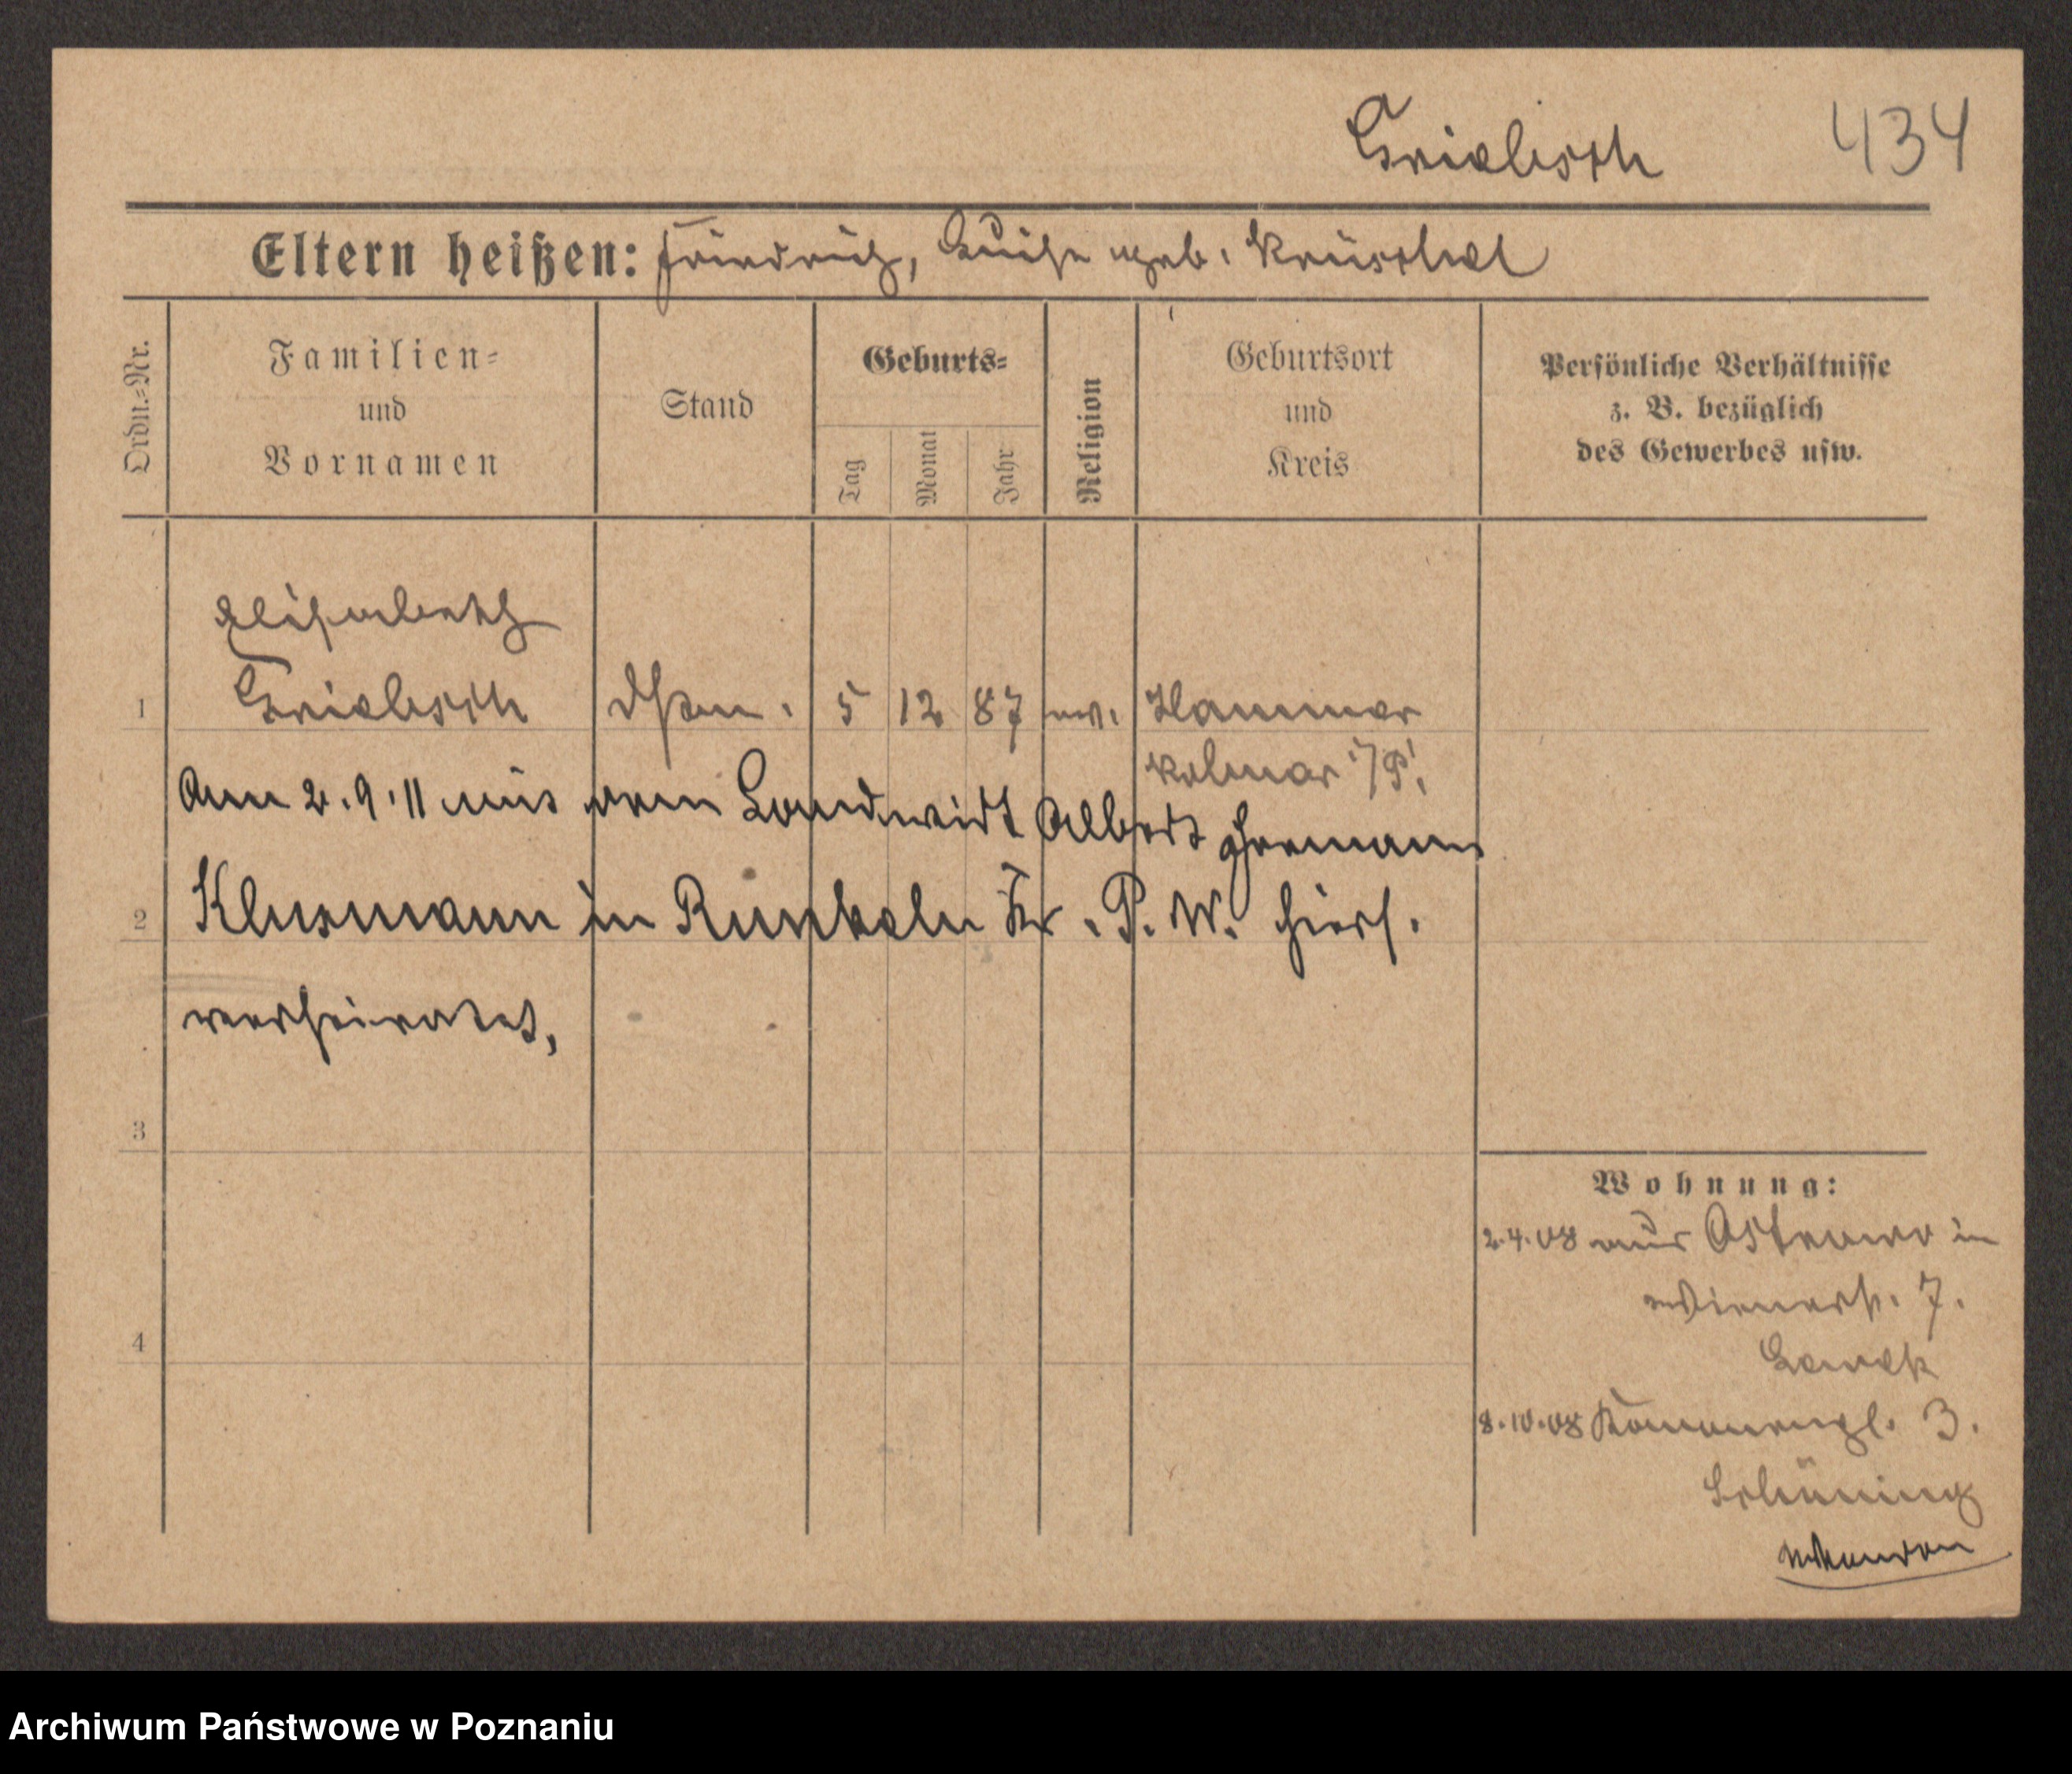 Triebsch 434
Eltern heißen: Friedrich, Luise geb. Krüschel
Ordn.=Nr.
Familien=
und
Vornamen
Stand
Geburts=
Tag
Monat
Jahr
Religion
Geburtsort
und
Kreis
Persönliche Verhältnisse
z. B. bezüglich
des Gewerbes usw.
Elisabeth
1 Triebsch 5 12 87 ev. Hammer
Kolmar i/P.
Am 2.9.11 mit dem Landwirt Albert Hermann
2 Klusmann in Runkeln Kr. P. W. hiers.
verheiratet,
3
4
Wohnung:
2.4.08 aus Ostrowo in
Wienerstr. 7.
8.10.08 3.
Schüning
Archiwum Państwowe w Poznaniu